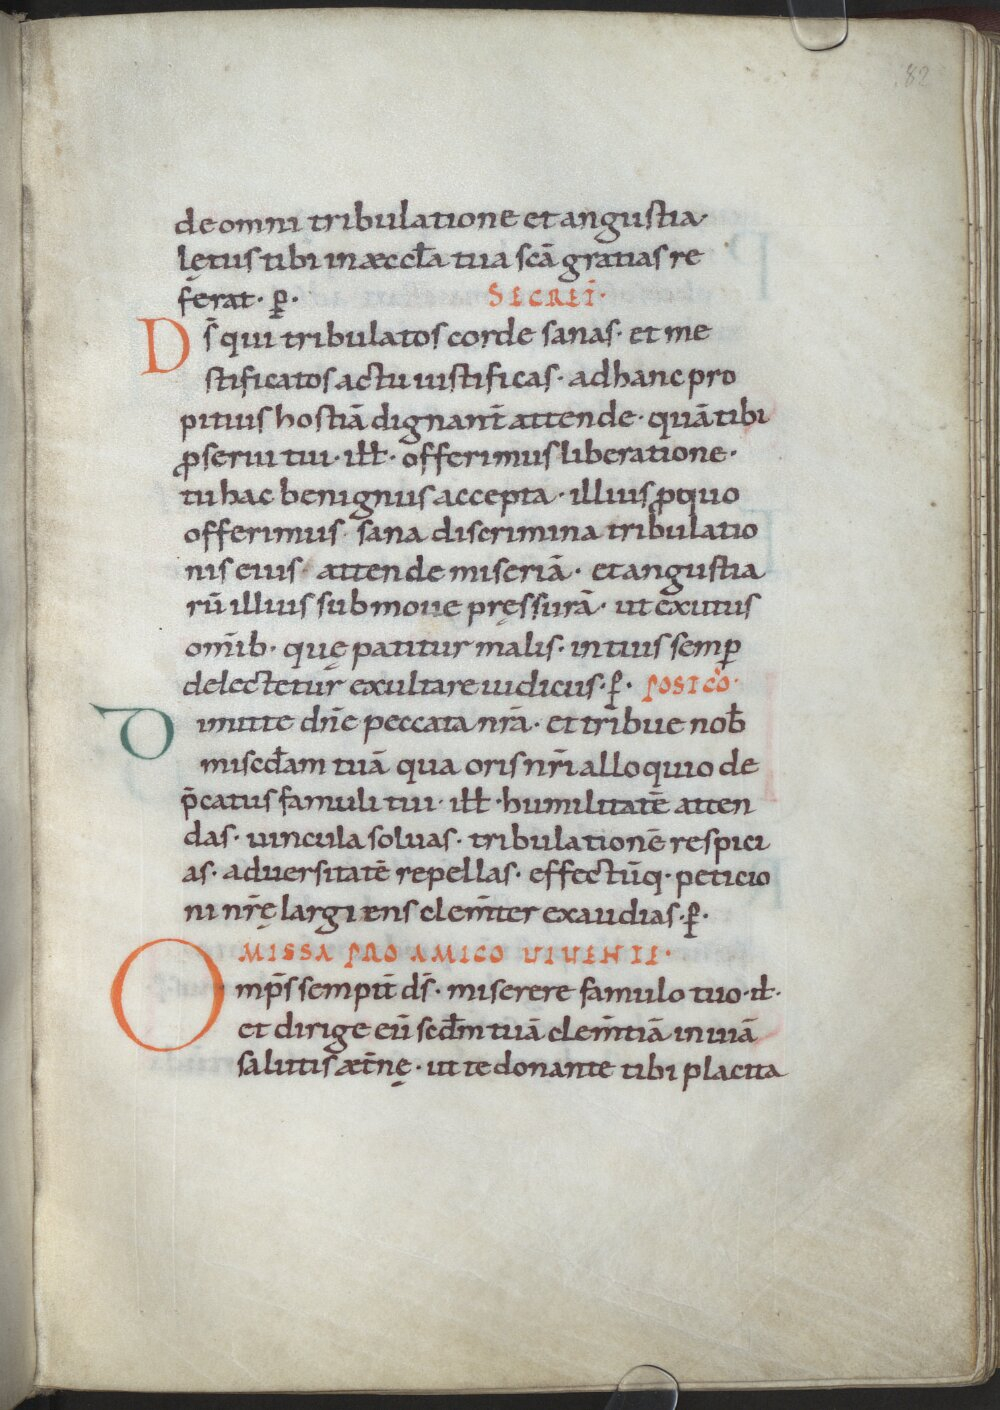 82
de omni tribulatione et angustia·
lętus tibi in æccl̄a tua scā gratias re
ferat· p̲·
SECRET̄·
Ds̄ qui tribulatos corde sanas· et me
stificatos actu iustificas· ad hanc pro
pitius hostiā dignant̄ attende· quā tibi
ꝓ serui tui· ill̄· offerimus liberatione·
tu hac benignus accepta· illius ꝓ quo
offerimus· sana discrimina tribulatio
nis eius attende miseriā· et angustia
rū illius submoue pręssurā· ut exutus
om̄ib· quę patitur malis· in tuis semꝑ
delectetur exultare iudicus· ꝑ·
POSTCŌ·
Dimitte dn̄e peccata nr̄a· et tribue nob̄
misc̄dam tuā qua oris nr̄i alloquio de
p̄catus famuli tui· ill̄· humilitatē atten
das· uincula soluas· tribulationē respici
as· aduersitatē repellas· effectūq· peticio
ni nr̄ę largiens clem̄ter exaudias· ꝑ·
MISSA PRO AMICO VIVENTE·
Omp̄s sempit̄ ds̄· miserere famulo tuo· il̄·
et dirige eū scd̄m tuā clem̄tiā in uiā
salutis æt̄nę· ut te donante tibi placita